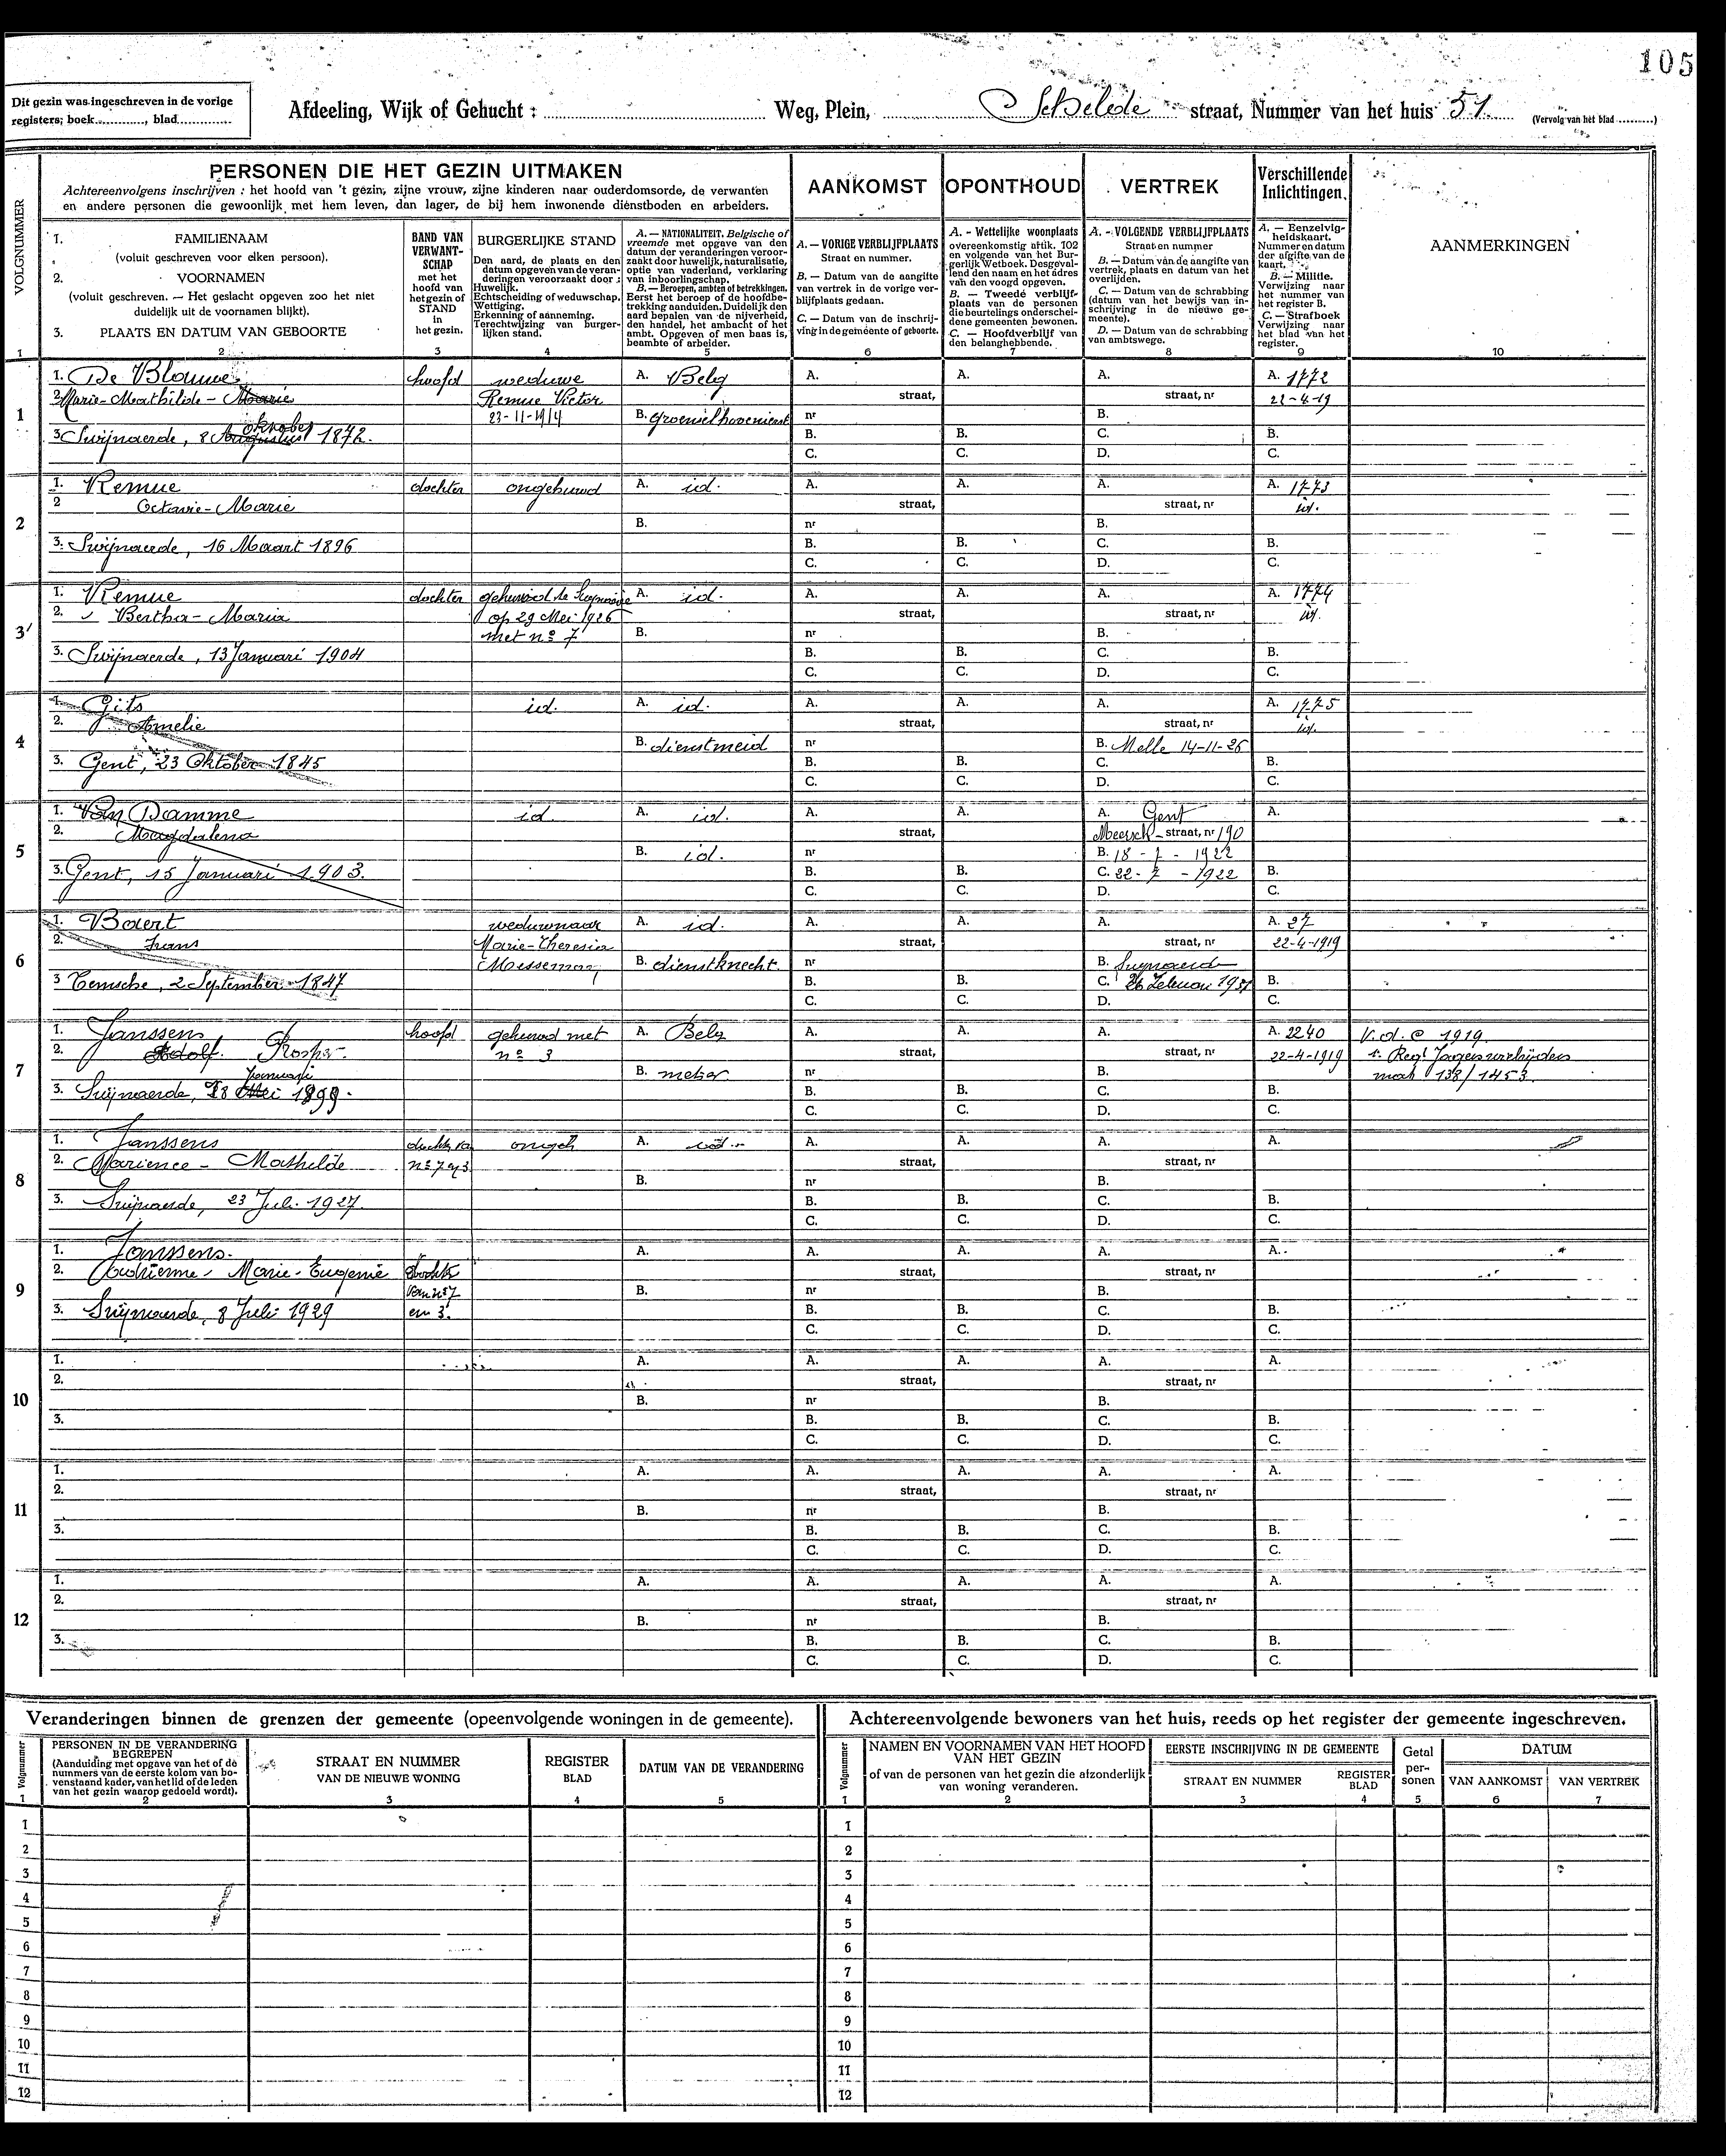 105
Dit gezin was ingeschreven in de vorige
registers; boek ............, blad ..............
Afdeeling, Wijk of Gehucht : Weg, Plein, Schelede straat, Nummer van het huis 51. (Vervolg van het blad ..........)
VOLGNUMMER
PERSONEN DIE HET GEZIN UITMAKEN
Achtereenvolgens inschrijven : het hoofd van 't gezin, zijne vrouw, zijne kinderen naar ouderdomsorde, de verwanten
en andere personen die gewoonlijk met hem leven, dan lager, de bij hem inwonende dienstboden en arbeiders.
AANKOMST
OPONTHOUD
VERTREK
Verschillende
Inlichtingen.
1. FAMILIENAAM
(voluit geschreven voor elken persoon).
2. VOORNAMEN
(voluit geschreven. — Het geslacht opgeven zoo het niet
duidelijk uit de voornamen blijkt).
3. PLAATS EN DATUM VAN GEBOORTE
BAND VAN
VERWANT-
SCHAP
met het
hoofd van
het gezin of
STAND
in
het gezin.
BURGERLIJKE STAND
Den aard, de plaats en den
datum opgeven van de veran-
deringen veroorzaakt door :
Huwelijk.
Echtscheiding of weduwschap.
Wettiging.
Erkenning of aanneming.
Terechtwijzing van burger-
lijken stand.
A. — NATIONALITEIT. Belgische of
vreemde met opgave van den
datum der veranderingen veroor-
zaakt door huwelijk, naturalisatie,
optie van vaderland, verklaring
van inboorlingschap.
B. — Beroepen, ambten of betrekkingen.
Eerst het beroep of de hoofdbe-
trekking aanduiden. Duidelijk den
aard bepalen van de nijverheid,
den handel, het ambacht of het
ambt. Opgeven of men baas is,
beambte of arbeider.
A. — VORIGE VERBLIJFPLAATS
Straat en nummer.
B. — Datum van de aangifte
van vertrek in de vorige ver-
blijfplaats gedaan.
C. — Datum van de inschrij-
ving in de gemeente of geboorte.
A. - Wettelijke woonplaats
overeenkomstig artik. 102
en volgende van het Bur-
gerlijk Wetboek. Desgeval-
lend den naam en het adres
van den voogd opgeven.
B. — Tweede verblijf-
plaats van de personen
die beurtelings onderschei-
dene gemeenten bewonen.
C. — Hoofdverblijf van
den belanghebbende.
A. - VOLGENDE VERBLIJFPLAATS
Straat en nummer
B. — Datum van de aangifte van
vertrek, plaats en datum van het
overlijden.
C. — Datum van de schrabbing
(datum van het bewijs van in-
schrijving in de nieuwe ge-
meente).
D. — Datum van de schrabbing
van ambtswege.
A. — Eenzelvig-
heidskaart.
Nummer en datum
der afgifte van de
kaart.
B. — Militie.
Verwijzing naar
het nummer van
het register B.
C. — Strafboek
Verwijzing naar
het blad van het
register.
AANMERKINGEN
1 2 3 4 5 6 7 8 9 10
1. De Blauwe hoofd weduwe A. Belg A. A. A. A. 1772
2. Marie-Mathilde - Marie Remue Victor straat, straat, nr 22-4-19
1 23-11-1914 B. groenselhovenierst nr B.
oktober
3. Swijnaerde, 8 Augustus 1872. B. B. C. B.
C. C. D. C.
1. Remue dochter ongehuwd A. id. A. A. A. A. 1773
2 Octavie-Marie straat, straat, nr id.
2 B. nr B.
3. Swijnaerde, 16 Maart 1896 B. B. C. B.
C. C. D. C.
1. Remue dochter gehuwd te Swijnaerde A. id. A. A. A. A. 1774
2. Bertha-Maria op 29 Mei 1926 straat, straat, nr id.
3 met nº 7 B. nr B.
3. Swijnaerde, 13 Januari 1904 B. B. C. B.
C. C. D. C.
1. Gits id. A. id. A. A. A. A. 1775
2. Amelie straat, straat, nr id.
4 B. dienstmeid nr B. Melle 14-11-26
3. Gent, 23 Oktober 1845 B. B. C. B.
C. C. D. C.
1. Van Damme id. A. id. A. A. A. Gent A.
2. Magdalena straat, Meersch-straat, nr 190
5 B. id. nr B. 18 - 7 - 1922
3. Gent, 15 Januari 1903. B. B. C. 22 - 7 - 1922 B.
C. C. D. C.
1. Baert weduwnaar A. id. A. A. A. A. 27
2. Frans Marie-Theresia straat, straat, nr 22-4-1919
6 Messeman B. dienstknecht. nr B. Swijnaerde
3 Temsche, 2 September 1847 B. B. C. 26 Februari 1931 B.
C. C. D. C.
1. Janssens hoofd gehuwd met A. Belg A. A. A. A. 2240 V.d. @ 1919
2. Adolf. Prosper. nº 3 straat, straat, nr 22-4-1919 1e Regt Jagers
7 Januari B. metser nr B. mat 138/1453
3. Swijnaerde, 18 Mei 1899. B. B. C. B.
C. C. D. C.
1. Janssens dochter van ongeh A. id. A. A. A. A.
2. - Mathilde nº 7 en 3 straat, straat, nr
8 B. nr B.
3. Swijnaerde, 23 Juli 1927. B. B. C. B.
C. C. D. C.
1. Janssens. A. A. A. A. A.
2. - Marie-Eugenie dochter straat, straat, nr
9 van nº 7 B. nr B.
3. Swijnaerde, 8 Juli 1929 en 3. B. B. C. B.
C. C. D. C.
1. A. A. A. A. A.
2. straat, straat, nr
10 B. nr B.
3. B. B. C. B.
C. C. D. C.
1. A. A. A. A. A.
2. straat, straat, nr
11 B. nr B.
3. B. B. C. B.
C. C. D. C.
1. A. A. A. A. A.
2. straat, straat, nr
12 B. nr B.
3. B. B. C. B.
C. C. D. C.
Veranderingen binnen de grenzen der gemeente (opeenvolgende woningen in de gemeente).
Volgnummer
PERSONEN IN DE VERANDERING
BEGREPEN
(Aanduiding met opgave van het of de
nummers van de eerste kolom van bo-
venstaand kader, van het lid of de leden
van het gezin waarop gedoeld wordt).
STRAAT EN NUMMER
VAN DE NIEUWE WONING
REGISTER
BLAD
DATUM VAN DE VERANDERING
1 2 3 4 5
1
2
3
4
5
6
7
8
9
10
11
12
Achtereenvolgende bewoners van het huis, reeds op het register der gemeente ingeschreven.
Volgnummer
NAMEN EN VOORNAMEN VAN HET HOOFD
VAN HET GEZIN
of van de personen van het gezin die afzonderlijk
van woning veranderen.
EERSTE INSCHRIJVING IN DE GEMEENTE
STRAAT EN NUMMER
REGISTER
BLAD
Getal
per-
sonen
DATUM
VAN AANKOMST
VAN VERTREK
1 2 3 4 5 6 7
1
2
3
4
5
6
7
8
9
10
11
12